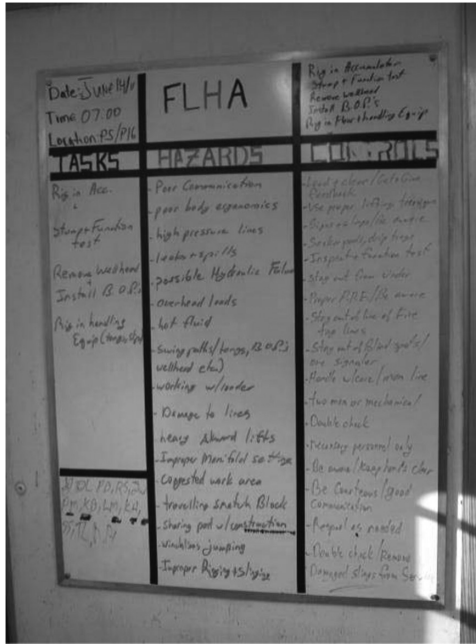 Date: JUNE 14/11
Time 07:00
Location: P5/P16
FLHA
Rig in Accumulator
Stump + Function test
Remove wellhead
Install B.O.P's
Rig in Floor + handling Equip
TASKS
Rig in Acc.
Stump + Function
test
Remove Wellhead
Install B.O.P's
Rig in handling
Equip (tongs,
HAZARDS
- Poor Communication
- poor body ergonomics
- high pressure lines
- leaks + spills
- possible Hydraulic
- overhead loads
- hot fluid
- swing paths/tongs, B.O.P's
wellhead
- working w/
- Damage to lines
- heavy akward lifts
- Improper Manifold
- Congested work area
- travelling snatch Block
- sharing pad w/construction
- winchlines jumping
- Improper Rigging + slinging
CONTROLS
- Loud + clear/
feedback
- Use proper lifting
- Inspect + function test
- Stay out from under
- Proper P.P.E/Be aware
- Stay out of line of fire
tag lines
- Stay out of Blind spots/
one signaler
- Handle w/care/
- two man or mechanical
- Double check
- Necessary personel only
- Be aware/Keep hands clear
- Be Courteous/good
communication
- Respool as needed
- Double check/Remove
Damaged slings from